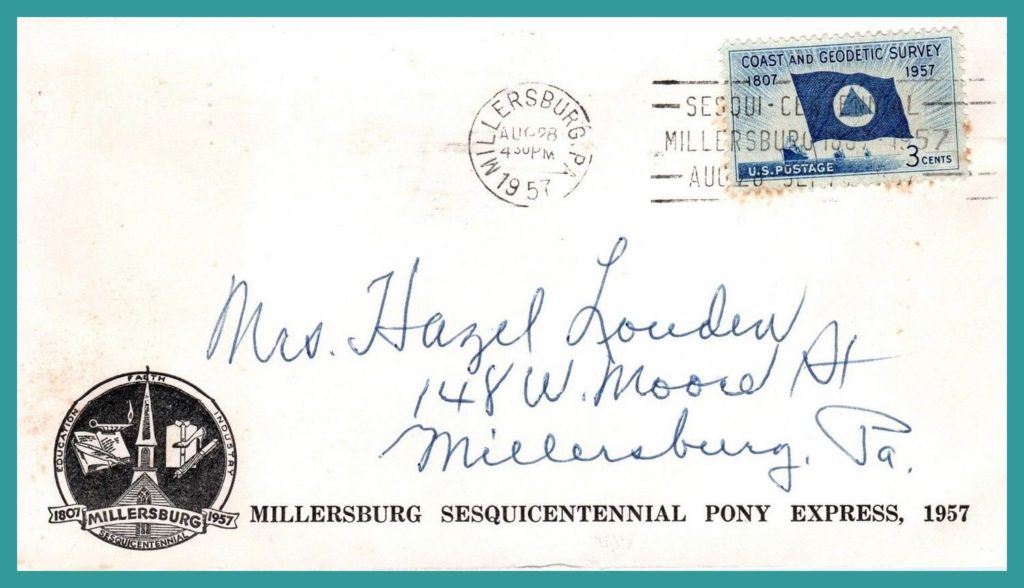 COAST AND GEODETIC SURVEY
1807 1957
3 CENTS
U.S. POSTAGE
MILLERSBURG, PA
AUG 28
4 30 PM
1957
SESQUI-CENTENNIAL
MILLERSBURG 1807 1957
AUG
Mrs. Hazel Louden
148 W. Moore St
Millersburg, Pa.
FAITH
EDUCATION
INDUSTRY
1807 MILLERSBURG 1957
SESQUICENTENNIAL
MILLERSBURG SESQUICENTENNIAL PONY EXPRESS, 1957